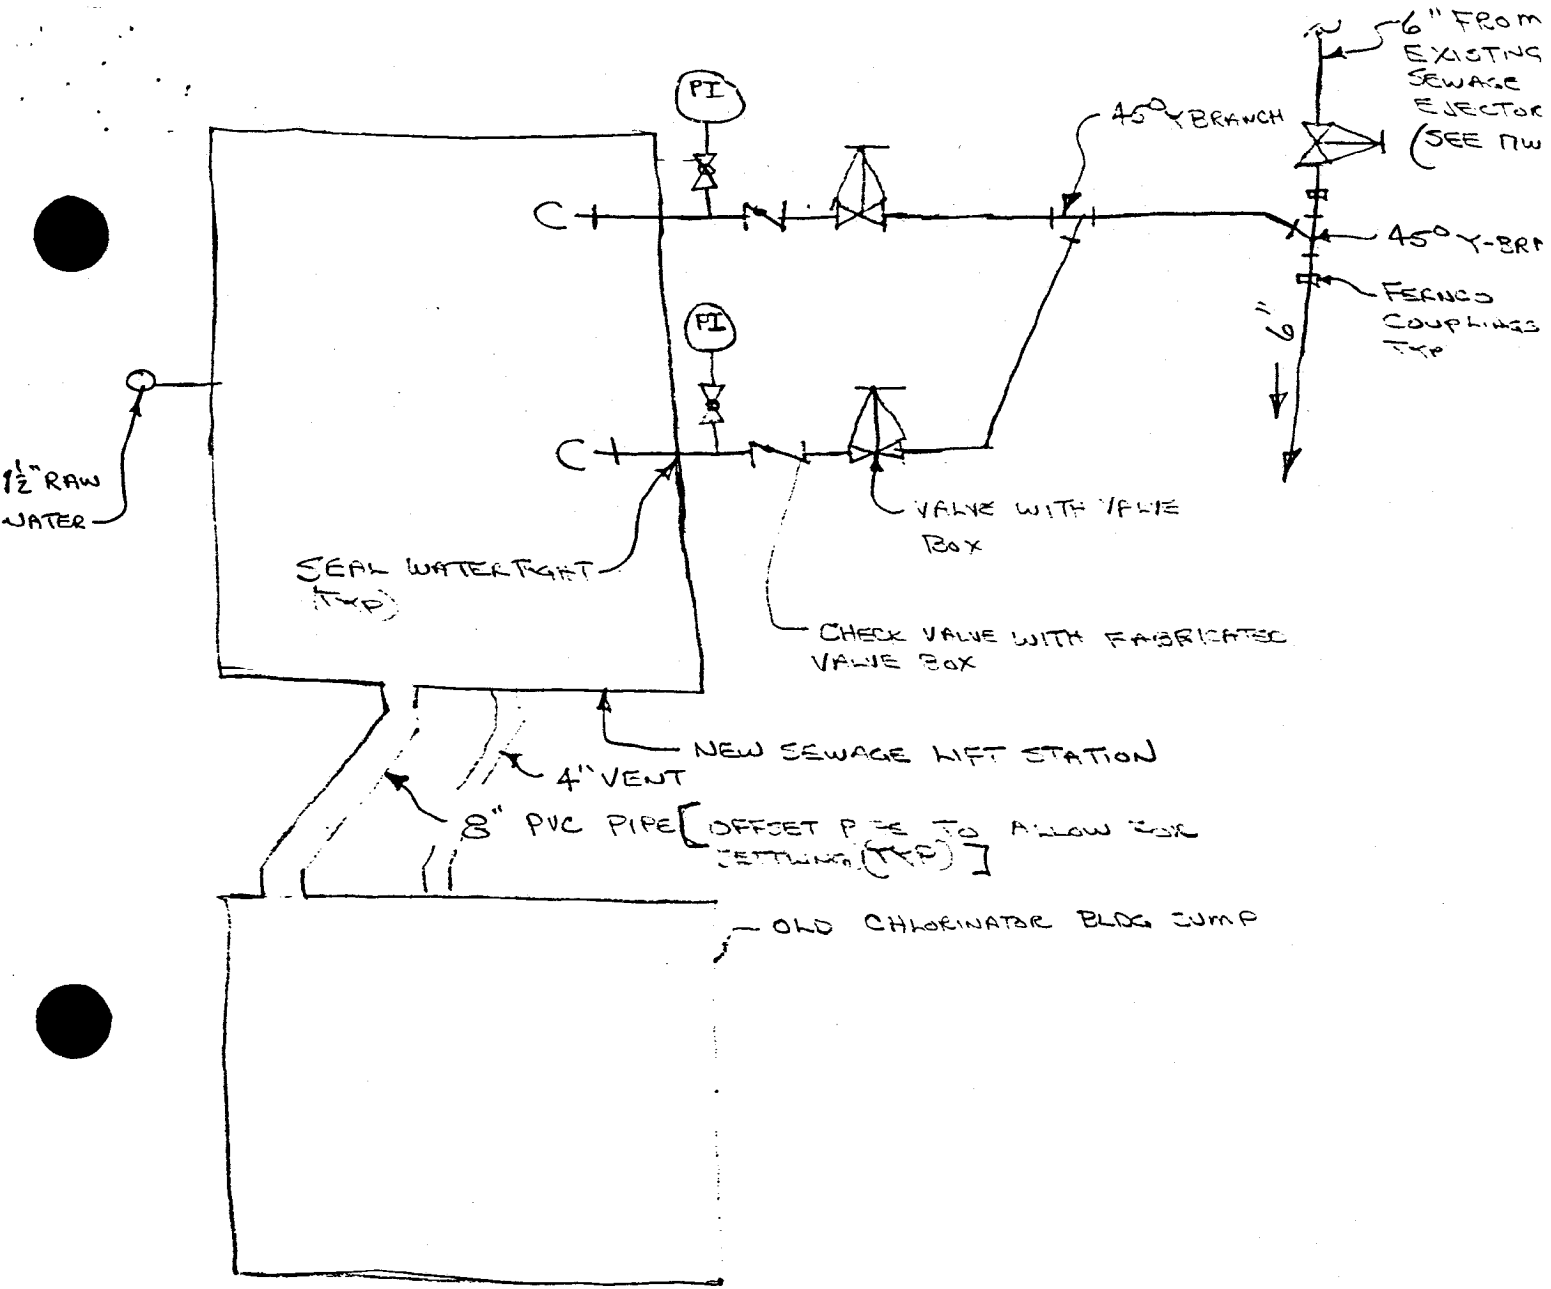 6" FROM
EXISTING
SEWAGE
EJECTOR
(SEE MW
PI
45° Y BRANCH
45° Y-BRA
FERNCO
COUPLINGS
TYP
6"
PI
1½" RAW
WATER
VALVE WITH VALVE
BOX
SEAL WATERTIGHT
(TYP)
CHECK VALVE WITH FABRICATED
VALVE BOX
NEW SEWAGE LIFT STATION
4" VENT
8" PVC PIPE [OFFSET PIPE TO ALLOW FOR
SETTLING (TYP)]
OLD CHLORINATOR BLDG SUMP